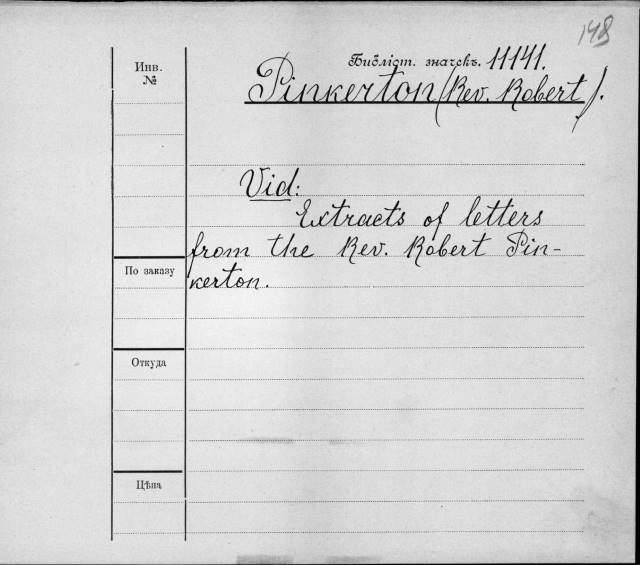 148
Библіот. значекъ. 11141.
Инв.
№
Pinkerton (Rev. Robert).
Vid:
Extracts of letters
from the Rev. Robert Pin-
kerton.
По заказу
Откуда
Цѣна